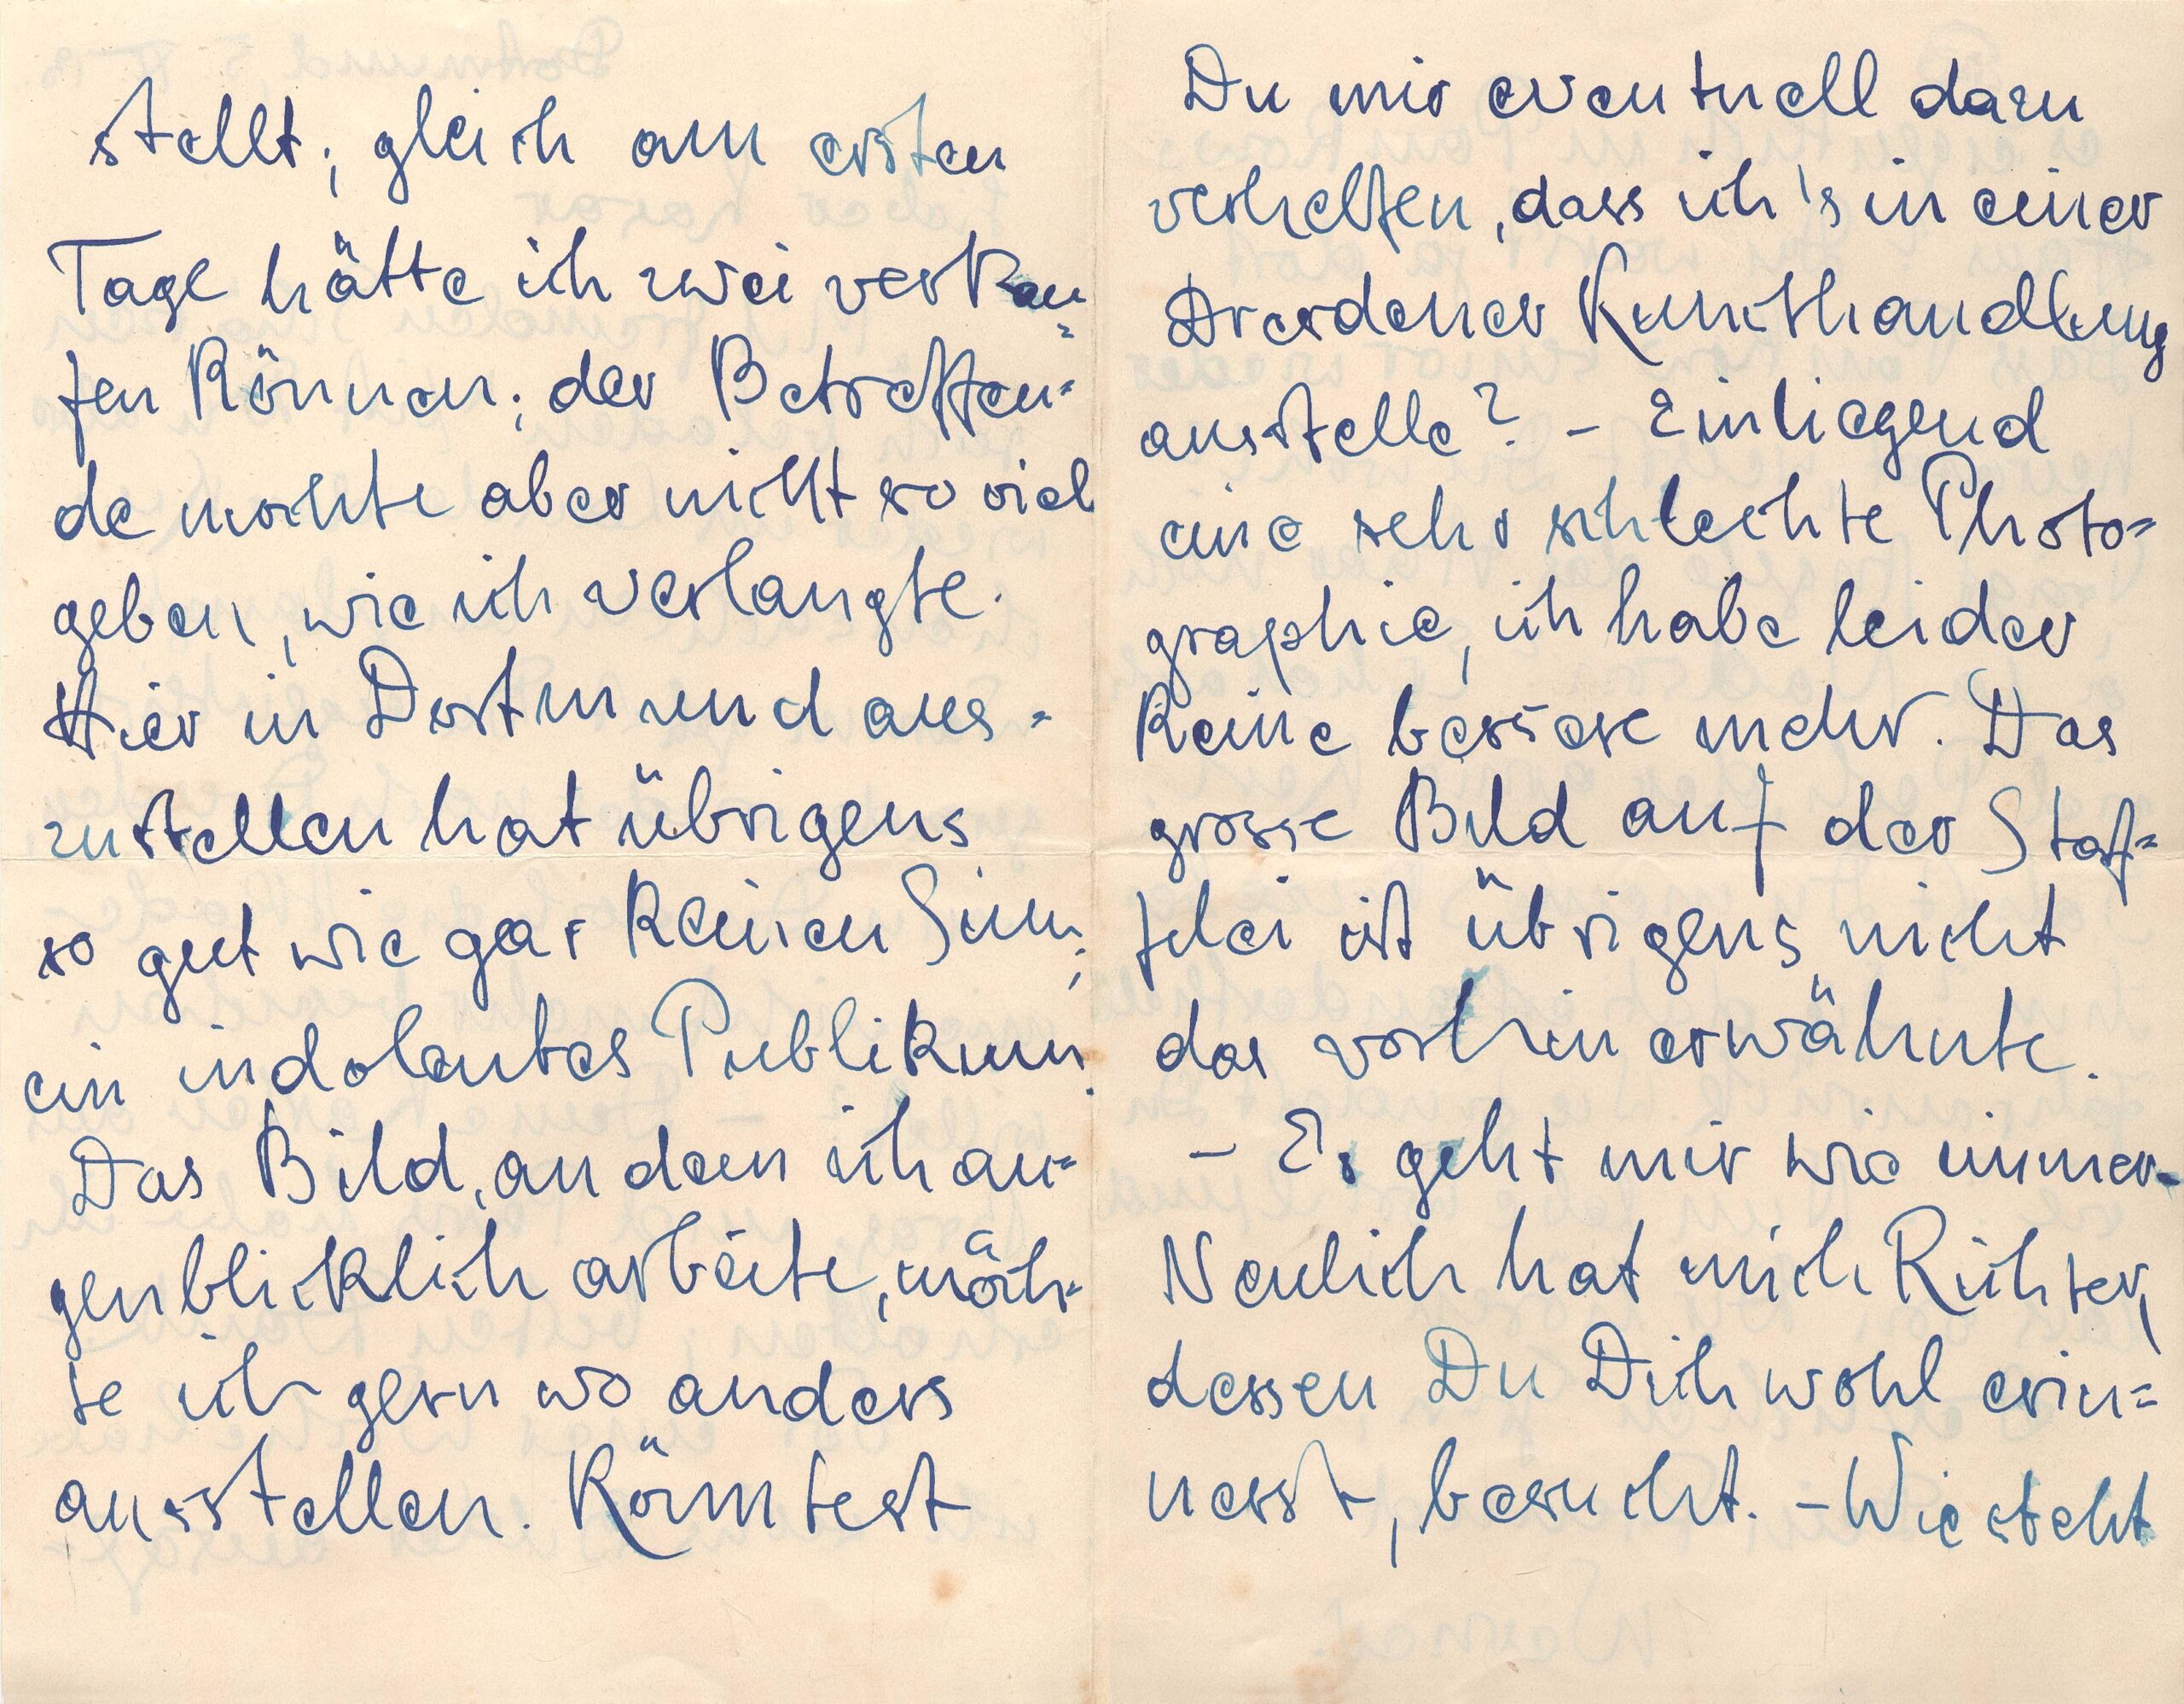 stellt; gleich am ersten
Tage hätte ich zwei verkau=
fen können; der Betreffen=
de mochte aber nicht so viel
geben, wie ich verlangte.
Hier in Dortmund aus=
zustellen hat übrigens
so gut wie gar keinen Sinn;
ein indolentes Publikum.
Das Bild, an dem ich au=
genblicklich arbeite, möch=
te ich gern wo anders
ausstellen. Könntest
Du mir eventuell dazu
verhelfen, dass ich's in einer
Dresdener Kunsthandlung
ausstelle? – Einliegend
eine sehr schlechte Photo=
graphie, ich habe leider
keine bessere mehr. Das
grosse Bild auf der Staf=
felei ist übrigens nicht
das vorhin erwähnte.
– Es geht mir wie immer.
Neulich hat mich Richter,
dessen Du Dich wohl erin=
nerst, besucht. – Wie steht